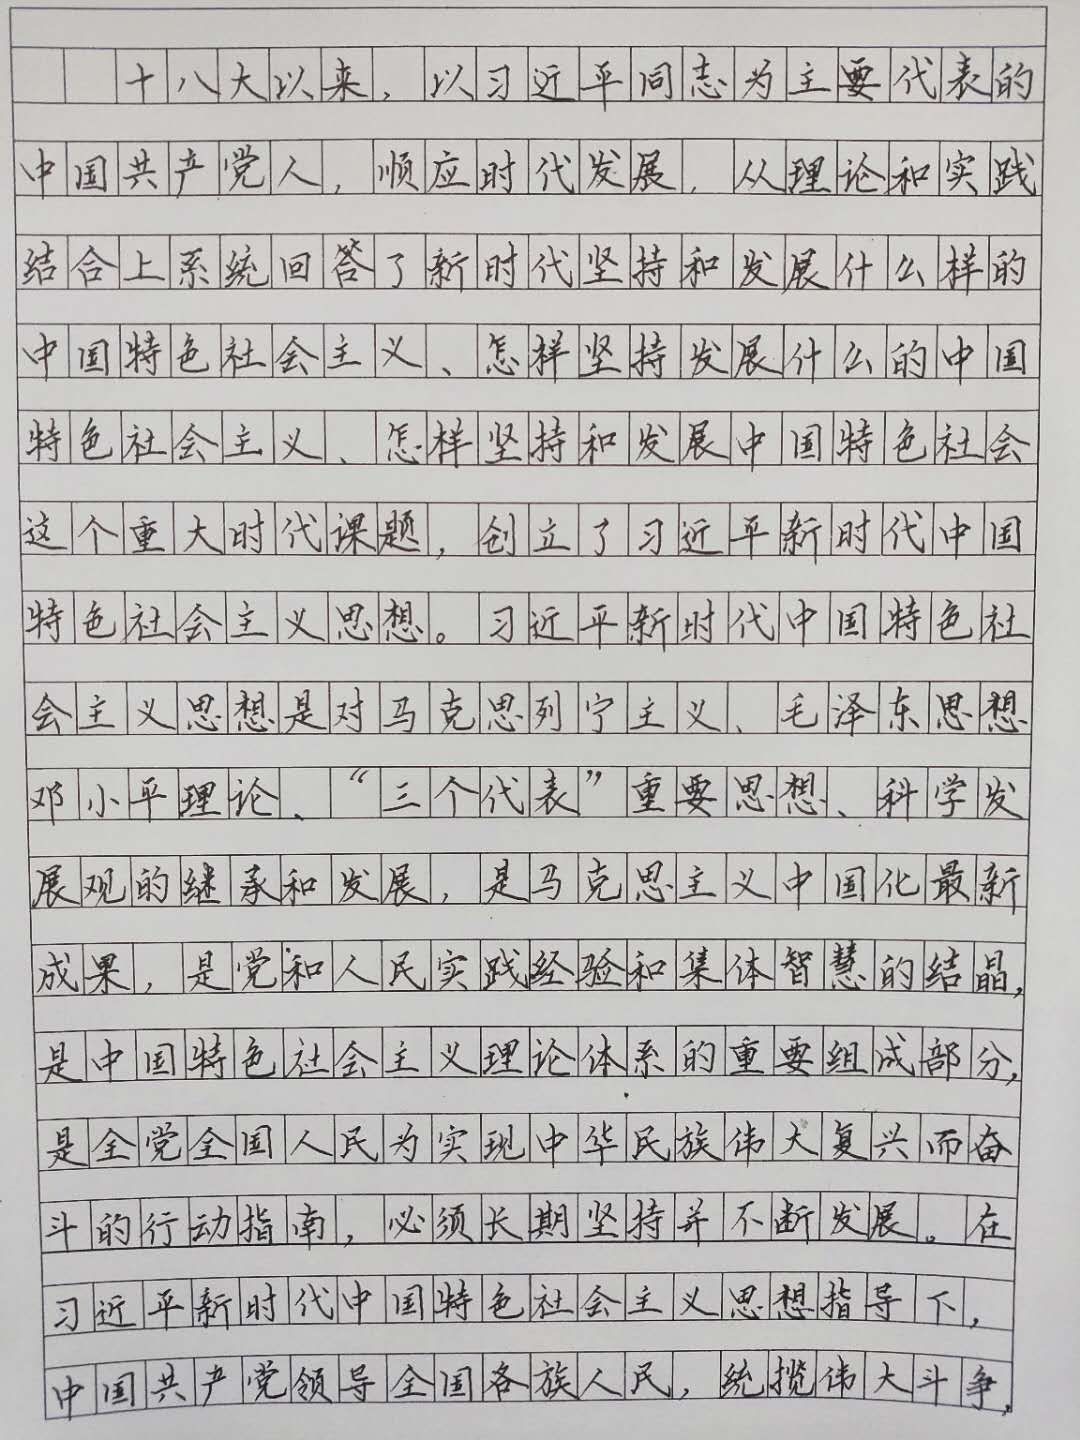 十八大以来，以习近平同志为主要代表的
中国共产党人，顺应时代发展，从理论和实践
结合上系统回答了新时代坚持和发展什么样的
中国特色社会主义、怎样坚持发展什么的中国
特色社会主义、怎样坚持和发展中国特色社会
这个重大时代课题，创立了习近平新时代中国
特色社会主义思想。习近平新时代中国特色社
会主义思想是对马克思列宁主义、毛泽东思想
邓小平理论、“三个代表”重要思想、科学发
展观的继承和发展，是马克思主义中国化最新
成果，是党和人民实践经验和集体智慧的结晶，
是中国特色社会主义理论体系的重要组成部分，
是全党全国人民为实现中华民族伟大复兴而奋
斗的行动指南，必须长期坚持并不断发展。在
习近平新时代中国特色社会主义思想指导下，
中国共产党领导全国各族人民，统揽伟大斗争，